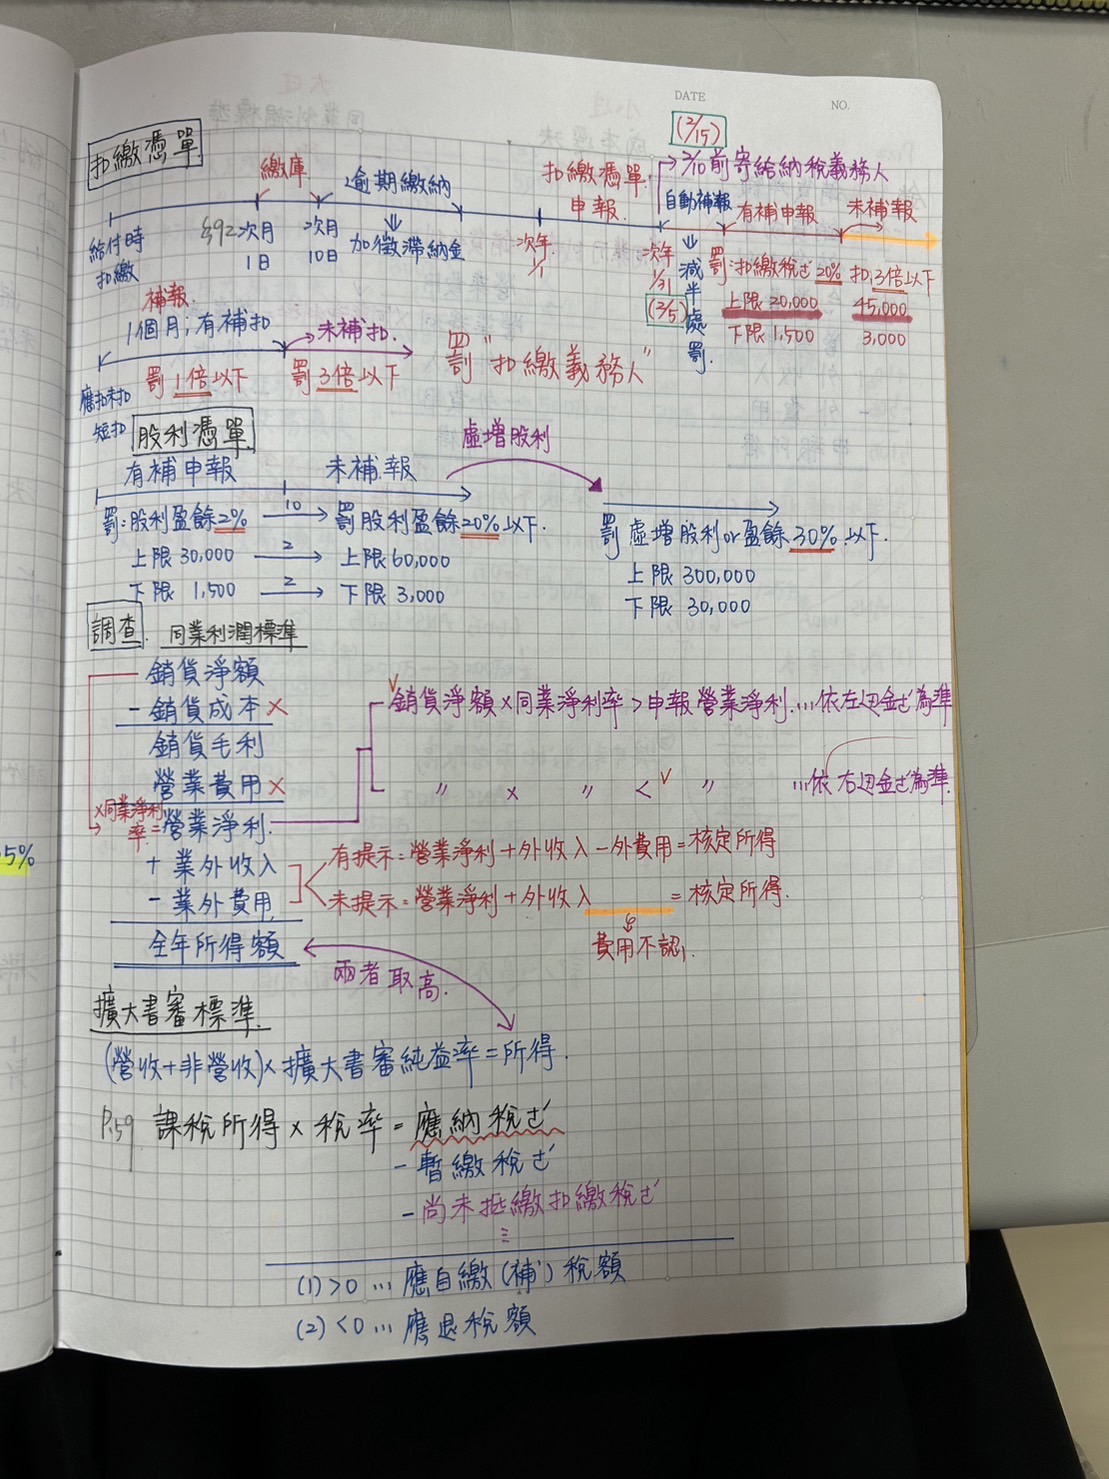 DATE
NO.
(2/15)
扣繳憑單
繳庫
逾期繳納
扣繳憑單
申報
2/10前寄給納稅義務人
自動補報
有補申報
未補報
給付時
扣繳
§92次月
1日
次月
10日
加徵滯納金
次年
1/1
次年
1/31
(2/5)
減半處罰.
罰:扣繳稅ㄜˊ20%
上限20,000
下限1,500
扣,3倍以下
45,000
3,000
補報.
1個月;有補扣
未補扣.
罰1倍以下
罰3倍以下
罰"扣繳義務人"
應扣未扣
短扣
股利憑單
虛增股利
有補申報
未補.報
罰:股利盈餘2%
10
罰股利盈餘20%以下.
罰虛增股利or盈餘30%以下.
上限30,000
2
上限60,000
上限300,000
下限1,500
2
下限3,000
下限30,000
調查.
同業利潤標準
銷貨淨額
-銷貨成本×
銷貨毛利
營業費用×
×同業淨利率
=營業淨利.
+業外收入
-業外費用
全年所得額
銷貨淨額×同業淨利率>申報營業淨利...依左边金ㄜˊ為準
〃 × 〃 < 〃 ...依右边金ㄜˊ為準.
有提示=營業淨利+外收入-外費用=核定所得
未提示=營業淨利+外收入 =核定所得.
費用不認.
兩者取高.
5%
擴大書審標準.
(營收+非營收)×擴大書審純益率=所得.
P.159 課稅所得×稅率=應納稅ㄜˊ
-暫繳稅ㄜˊ
-尚未抵繳扣繳稅ㄜˊ
(1)>0...應自繳(補)稅額
(2)<0...應退稅額